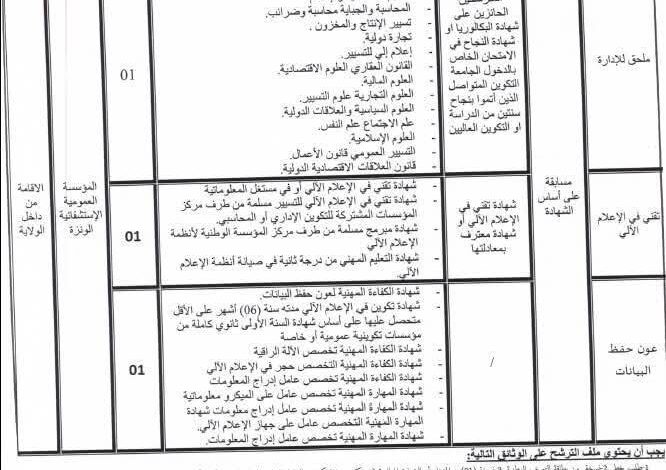 ملحق للإدارة
الحائزين على
شهادة البكالوريا أو
شهادة النجاح في
الامتحان الخاص
بالدخول الجامعة
التكوين المتواصل
الذين أتموا بنجاح
سنتين من الدراسة
أو التكوين العاليين
- المحاسبة والجباية محاسبة وضرائب.
- تسيير الإنتاج والمخزون .
- تجارة دولية.
- إعلام إلي للتسيير.
- القانون العقاري العلوم الاقتصادية.
- العلوم المالية.
- العلوم التجارية علوم التسيير.
- العلوم السياسية والعلاقات الدولية.
- علم الاجتماع علم النفس.
- العلوم الإسلامية.
- التسيير العمومي قانون الأعمال.
- قانون العلاقات الاقتصادية الدولية.
01
تقني في الإعلام
الآلي
مسابقة
على أساس
الشهادة
شهادة تقني في
الإعلام الآلي أو
شهادة معترف
بمعادلتها
- شهادة تقني في الإعلام الآلي أو في مستغل المعلوماتية
- شهادة تقني في الإعلام الآلي للتسيير مسلمة من طرف مركز
المؤسسات المشتركة للتكوين الإداري أو المحاسبي.
- شهادة مبرمج مسلمة من طرف مركز المؤسسة الوطنية لأنظمة
الإعلام الآلي
- شهادة التعليم المهني من درجة ثانية في صيانة أنظمة الإعلام
الآلي.
01
المؤسسة
العمومية
الإستشفائية
الونزة
الاقامة
من
داخل
الولاية
عون حفظ
البيانات
/
- شهادة الكفاءة المهنية لعون حفظ البيانات.
- شهادة تكوين في الإعلام الآلي مدته سنة (06) أشهر على الأقل
متحصل عليها على أساس شهادة السنة الأولى ثانوي كاملة من
مؤسسات تكوينية عمومية أو خاصة
- شهادة الكفاءة المهنية تخصص الآلة الراقية
- شهادة الكفاءة المهنية التخصص حجر في الإعلام الآلي
- شهادة الكفاءة المهنية تخصص عامل إدراج المعلومات
- شهادة المهارة المهنية تخصص عامل على الميكرو معلوماتية
- شهادة المهارة المهنية تخصص عامل إدراج معلومات شهادة
المهارة المهنية التخصص عامل على جهاز الإعلام الآلي
- شهادة المهارة المهنية تخصص عامل إدراج المعلومات.
01
يجب أن يحتوي ملف الترشح على الوثائق التالية: